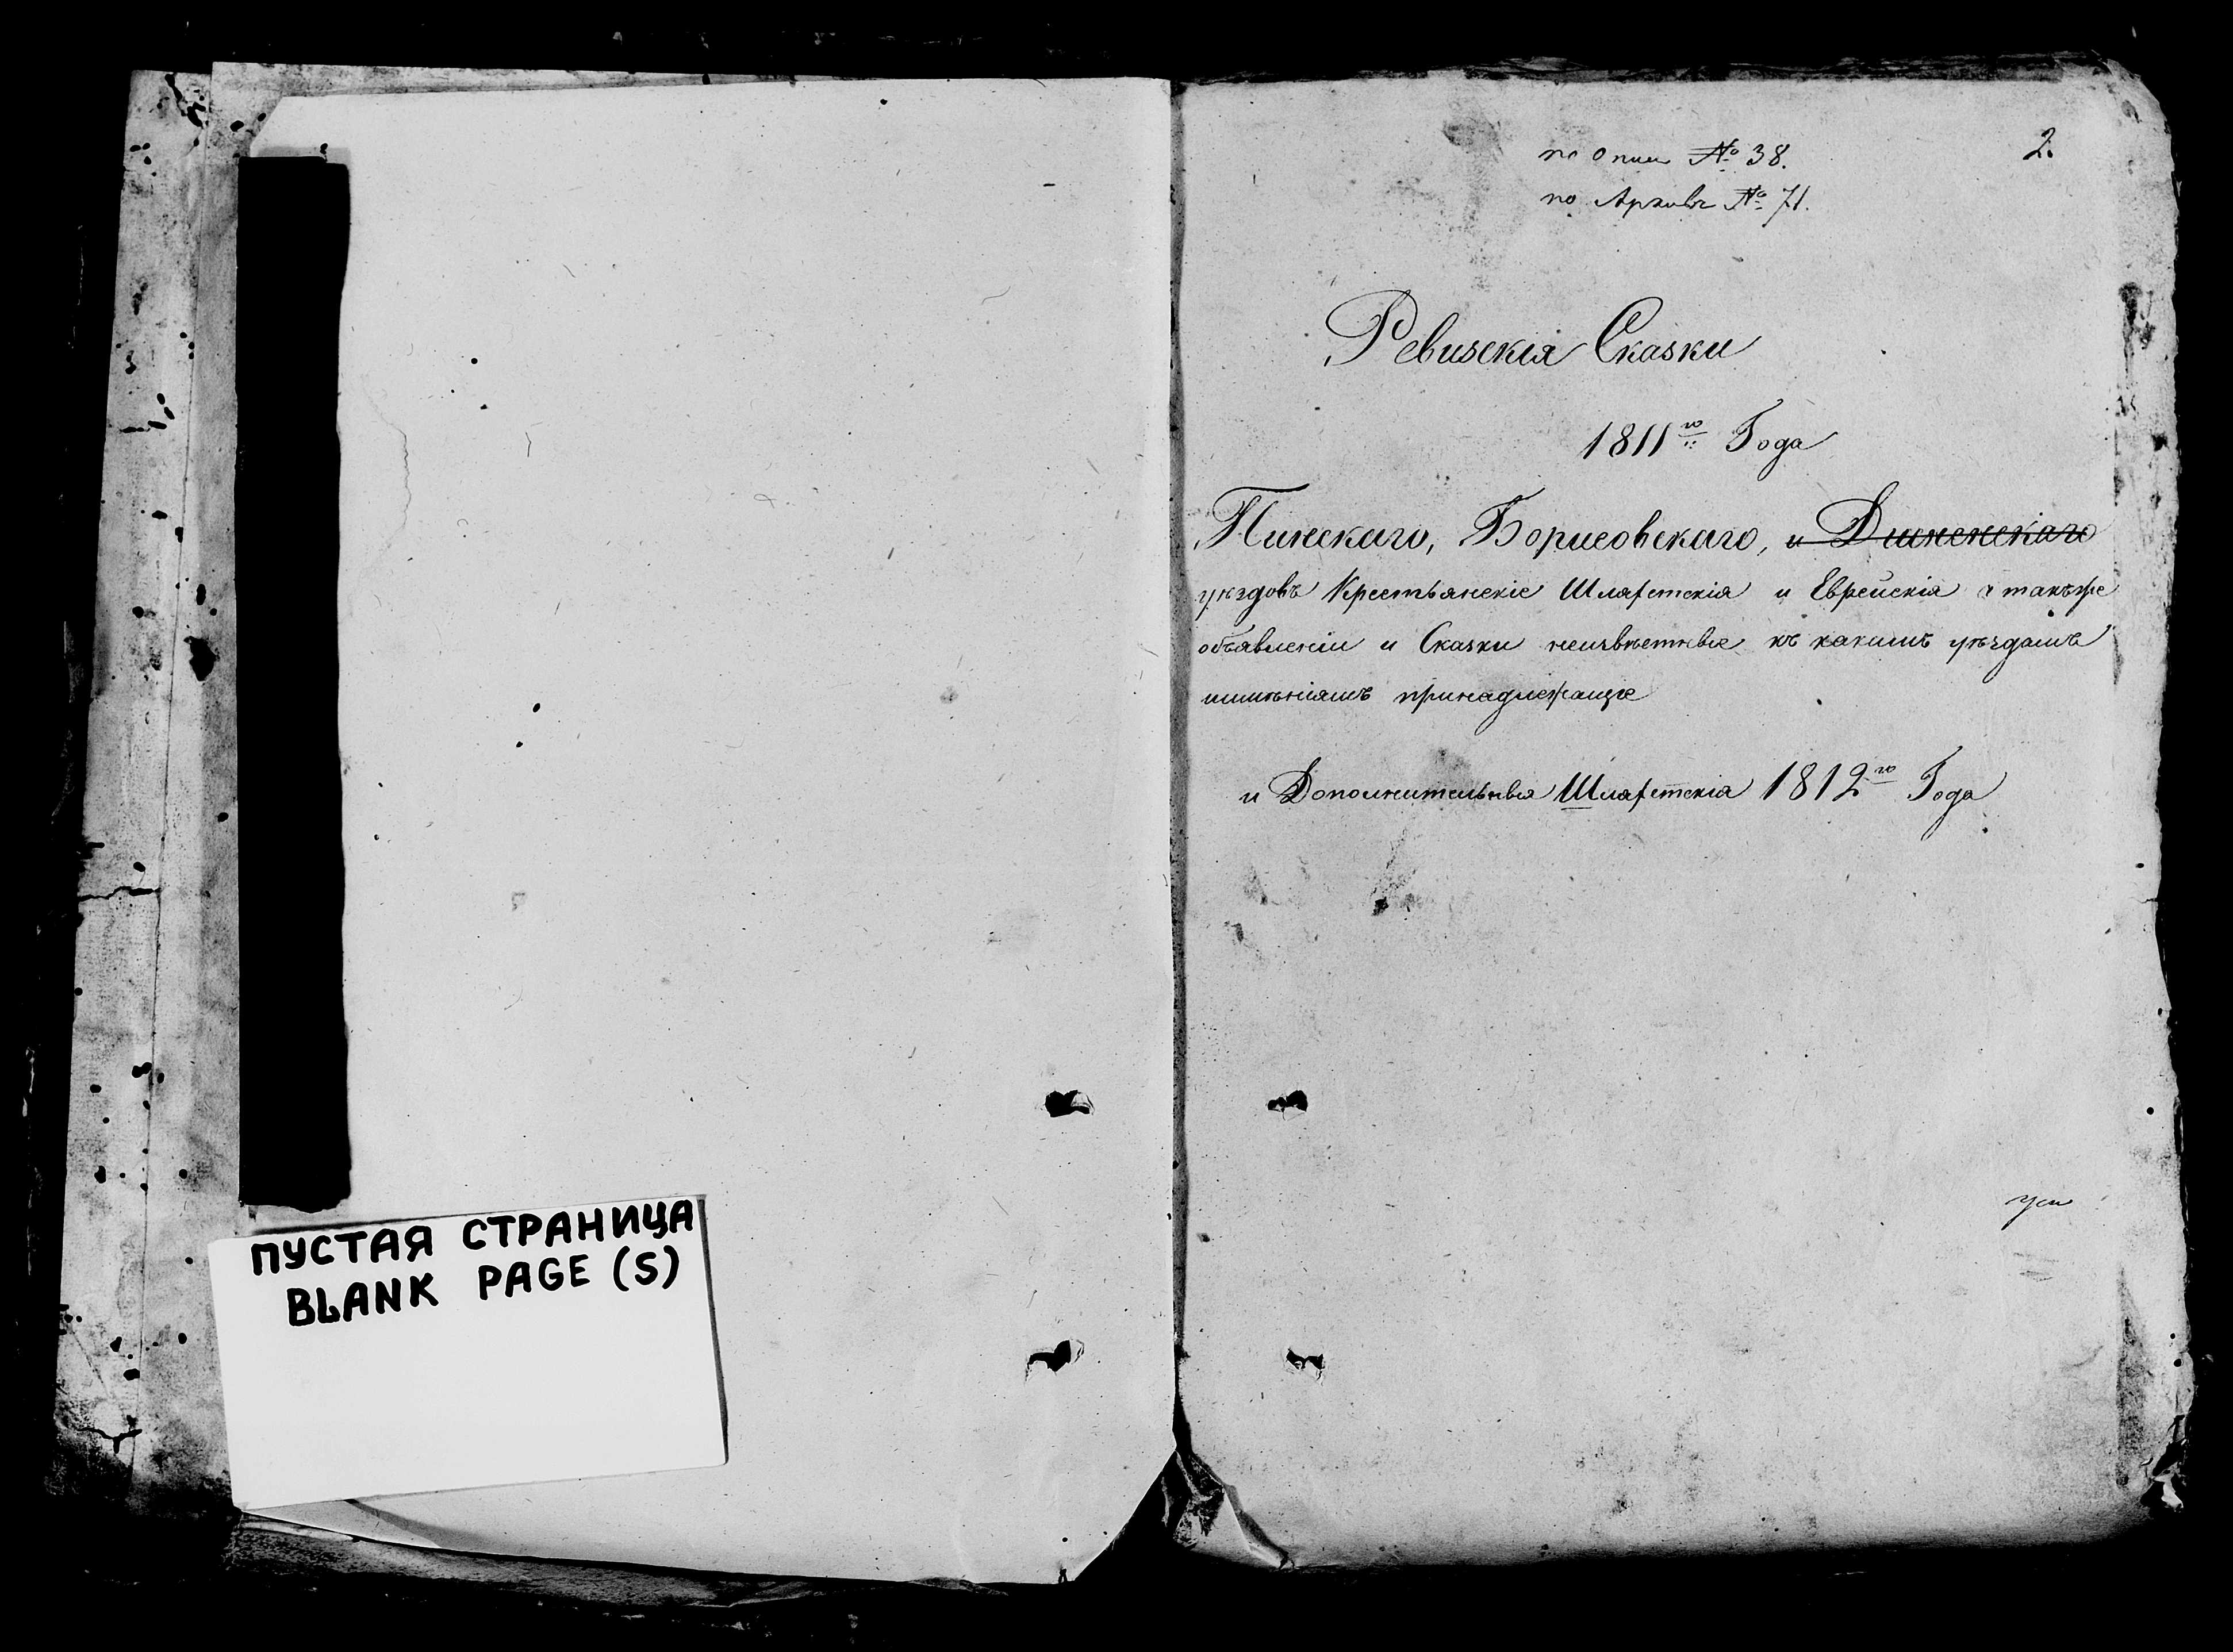 ПУСТАЯ СТРАНИЦА
BLANK PAGE (S)
2.
по описи № 38.
по Архивѣ № 71.
Ревизскія Сказки
1811го Года
Пинскаго, Борисовскаго, и Дисненскаго
уѣздовъ Крестьянскіе Шляхетскія и Еврейскія а такъже
объявленіи и Сказки неизвѣстные къ какимъ уѣздамъ
имѣніямъ принадлежащіе
и Дополнительныя Шляхетскія 1812го Года